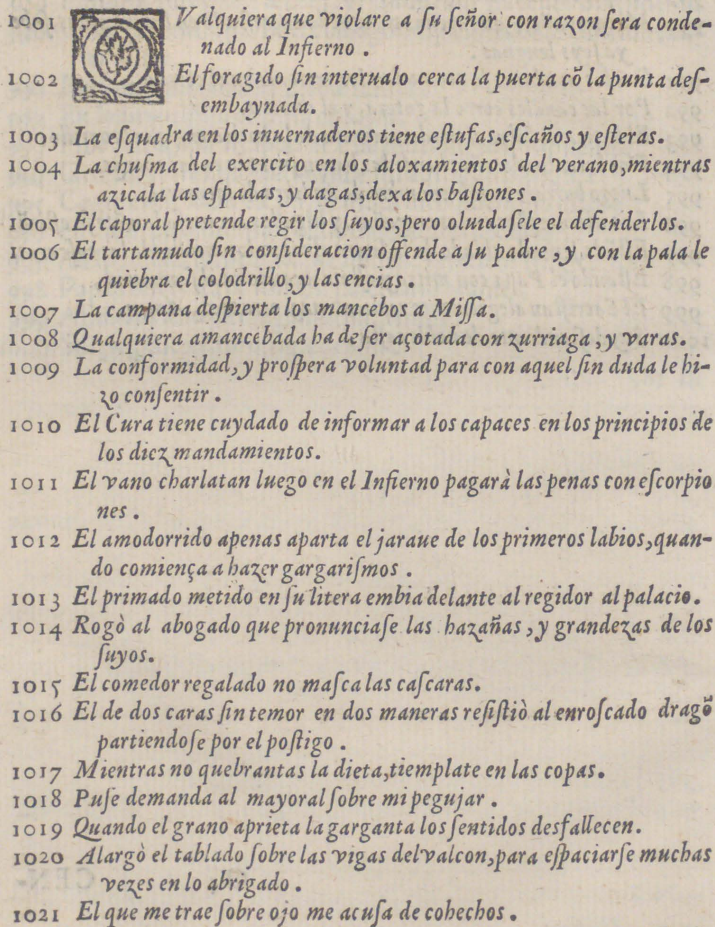 1001 QValquiera que violare a ſu ſeñor con razon ſera conde-
nado al Infierno .
1002 El foragido ſin interualo cerca la puerta cõ la punta deſ-
embaynada.
1003 La eſquadra en los inuernaderos tiene eſtufas,eſcaños y eſteras.
1004 La chuſma del exercito en los aloxamientos del verano,mientras
azicala las eſpadas,y dagas,dexa los baſtones .
1005 El caporal pretende regir los ſuyos,pero oluidaſele el defenderlos.
1006 El tartamudo ſin conſideracion offende a ſu padre ,y con la pala le
quiebra el colodrillo,y las encias .
1007 La campana deſpierta los mancebos a Miſſa.
1008 Qualquiera amancebada ha de ſer açotada con zurriaga ,y varas.
1009 La conformidad,y proſpera voluntad para con aquel ſin duda le hi-
zo conſentir .
1010 El Cura tiene cuydado de informar a los capaces en los principios de
los diez mandamientos.
1011 El vano charlatan luego en el Infierno pagarà las penas con eſcorpio
nes .
1012 El amodorrido apenas aparta el jaraue de los primeros labios,quan-
do comiença a hazer gargariſmos .
1013 El primado metido en ſu litera embia delante al regidor al palacio.
1014 Rogò al abogado que pronunciaſe las hazañas ,y grandezas de los
ſuyos.
1015 El comedor regalado no maſca las caſcaras.
1016 El de dos caras ſin temor en dos maneras reſiſtiò al enroſcado dragõ
partiendoſe por el poſtigo .
1017 Mientras no quebrantas la dieta,tiemplate en las copas.
1018 Puſe demanda al mayoral ſobre mi pegujar .
1019 Quando el grano aprieta la garganta los ſentidos desfallecen.
1020 Alargò el tablado ſobre las vigas del valcon,para eſpaciarſe muchas
vezes en lo abrigado .
1021 El que me trae ſobre ojo me acuſa de cohechos .